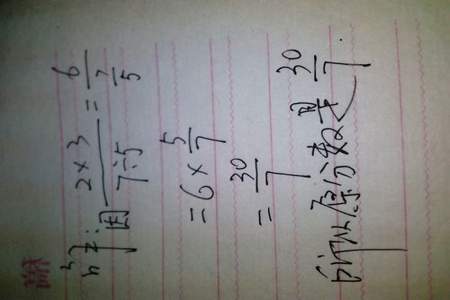 解：因 2×3/7÷5 = 6/(7/5)
=6×5/7
=30/7
所以原分数是30/7.